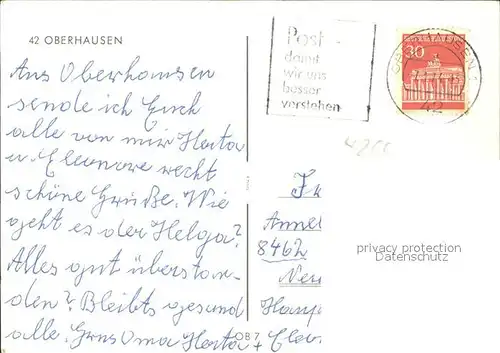 42 OBERHAUSEN
Aus Oberhausen
sende ich Euch
alle von mir Herta
u. Eleonore recht
schöne Grüße. Wie
geht es der Helga?
Alles gut überstan-
den? Bleibts gesund
alle. Gruss Oma Herta +
OB 7
Post -
damit
wir uns
besser
verstehen
30
42
8462
privacy protection
Datenschutz